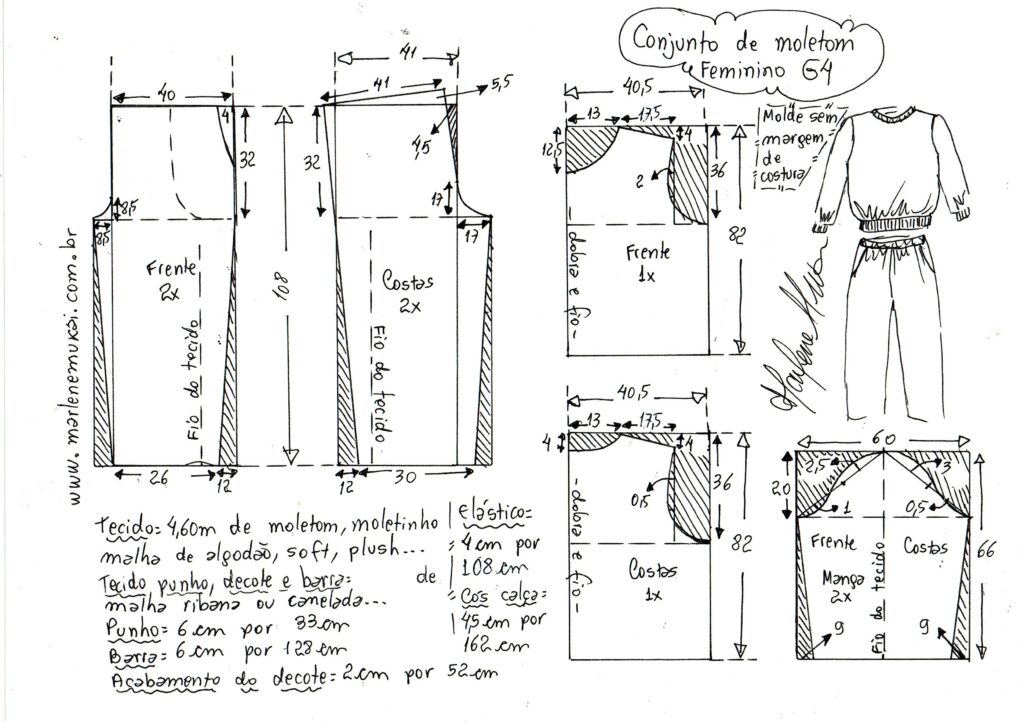 Conjunto de moletom
Feminino G4
Molde sem
margem
de
costura
41
41
5,5
40
4
32
32
4,5
17
8,5
8,5
17
108
Frente
2x
Costas
2x
Fio do tecido
Fio do tecido
26
12
12
30
www.marlenemukai.com.br
40,5
13
17,5
12,5
4
2
36
82
Frente
1x
-dobra e fio-
40,5
13
17,5
4
4
0,5
36
82
Costas
1x
-dobra e fio-
60
20
2,5
3
1
0,5
66
Frente
Costas
Manga
2x
Fio do tecido
9
9
Marlene Mukai
Tecido= 4,60m de moletom, moletinho
malha de algodão, soft, plush...
Tecido punho, decote e barra= de
malha ribana ou canelada...
Punho= 6 cm por 33cm
Barra= 6 cm por 128 cm
Acabamento do decote= 2cm por 52cm
elástico=
= 4cm por
108 cm
= Cós calça=
45 cm por
162 cm